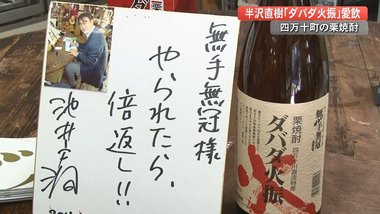 半沢直樹「ダバダ火振」愛飲
四万十町の栗焼酎
無手無冠様
やられたら、
倍返し!!
池井戸潤
無手無冠
栗焼酎
ダバダ火振